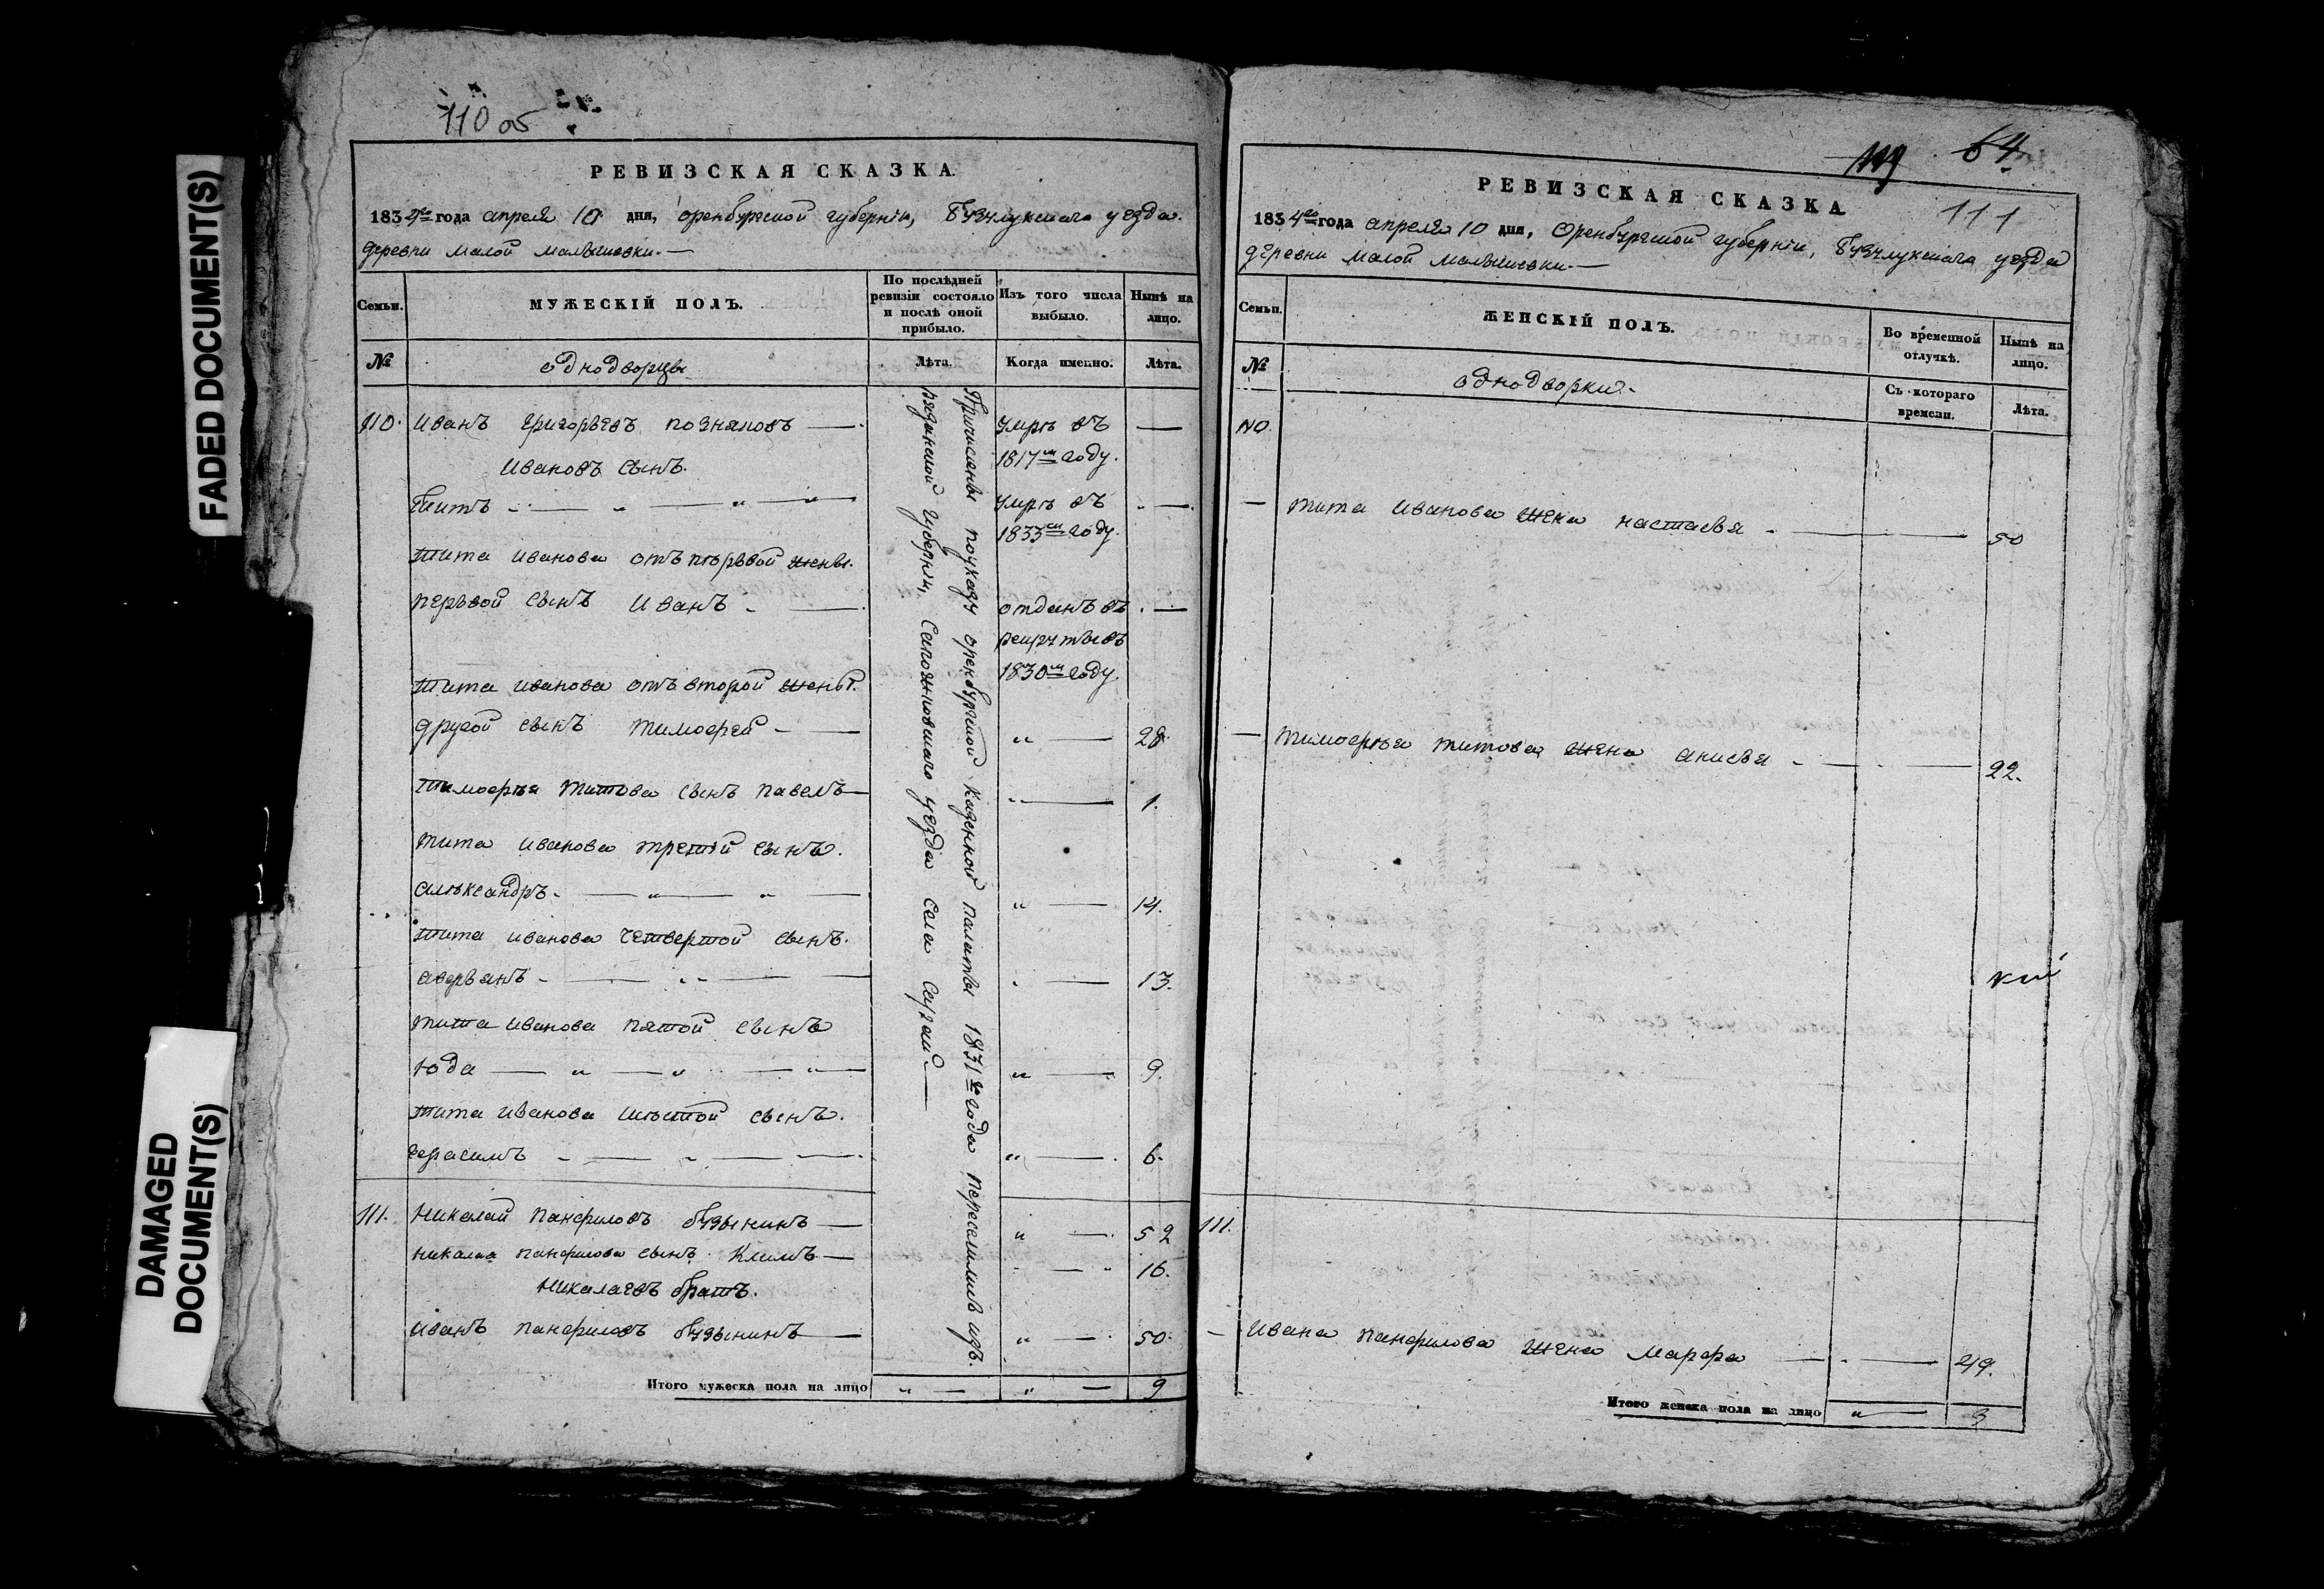 FADED DOCUMENT(S)
DAMAGED
DOCUMENT(S)
110 об
РЕВИЗСКАЯ СКАЗКА.
1834го года апреля 10 дня, оренбургской губернiи, Бузулукскаго уезда.
деревни малой малышевки.—
Семьи.
МУЖЕСКІЙ ПОЛЪ.
По послѣдней
ревизіи состояло
и послѣ оной
прибыло.
Изъ того числа
выбыло.
Нынѣ на
лицо.
№
однодворцы
Лѣта.
Когда именно.
Лѣта.
Причислены поуказу оренбургской казенной палаты 1831го года переселились изъ
рязанской губернiи, Сапожковскаго уезда села Сараи—
110. Иванъ Григорьевъ позняковъ —
умръ въ
1817м году. —
Ивановъ сынъ.
Титъ - — " — " —
умръ въ
1833м году. —
Тита Иванова отъ перьвой жены.
перьвой сынъ Иванъ - —
отданъ въ
рекруты въ
1830м году. —
Тита Иванова отъ второй жены.
другой сынъ Тимофей - — " — 28.
Тимофея Титова сынъ павелъ — " — 1.
Тита Иванова третий сынъ.
александръ. — " — " — " — 14.
Тита Иванова четвертой сынъ.
аверьянъ - — " — 13.
Тита Иванова пятой сынъ
Юда — " — " — " — " — 9.
Тита Иванова шестой сынъ.
герасимъ - — " — " — 6.
111. Николай панфиловъ бузынинъ — " — 52
николая панфилова сынъ Климъ — — " 16.
Николаевъ братъ.
Иванъ панфиловъ бузынинъ — " — 50.
Итого мужеска пола на лицо " — " — 9
64
111
РЕВИЗСКАЯ СКАЗКА
1834го года апреля 10 дня, Оренбургской губернiи, Бузулукскаго уезда
деревни малой малышевки.—
Семьи.
ЖЕНСКІЙ ПОЛЪ.
Во временной
отлучкѣ.
Нынѣ на
лицо.
№
однодворки.
Съ котораго
времени.
Лѣта.
110.
— Тита Иванова жена настасья - — — 50
— Тимофея титова жена анисья - — — 22.
111.
— Ивана панфилова жена Марфа — — 49.
Итого женска пола на лицо " — 3